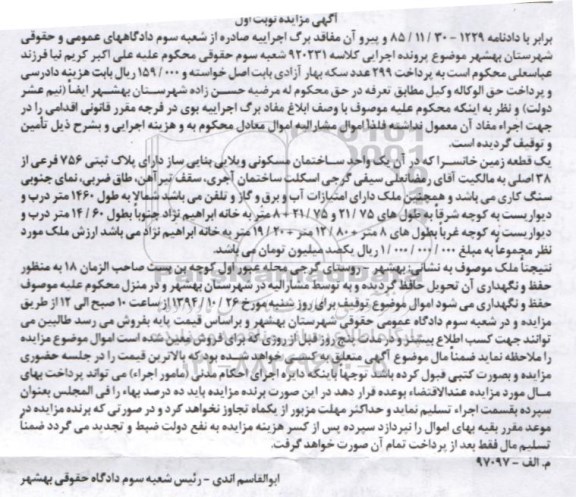 آگهی مزایده نوبت اول
برابر با دادنامه ۱۲۲۹ - ۳۰ / ۱۱ / ۸۵ و پیرو آن مفاقد برگ اجراییه صادره از شعبه سوم دادگاههای عمومی و حقوقی
شهرستان بهشهر موضوع پرونده اجرایی کلاسه ۹۲۰۲۳۱ شعبه سوم حقوقی محکوم علیه علی اکبر کریم نیا فرزند
عباسعلی محکوم است به پرداخت ۲۹۹ عدد سکه بهار آزادی بابت اصل خواسته و ۱۵۹/۰۰۰ ریال بابت هزینه دادرسی
و پرداخت حق الوکاله وکیل مطابق تعرفه در حق محکوم له مرضیه حسن زاده شهرستان بهشهر ایضا (نیم عشر
دولت) و نظر به اینکه محکوم علیه موصوف با وصف ابلاغ مفاد برگ اجراییه بوی در فرجه مقرر قانونی اقدامی را در
جهت اجراء مفاد آن معمول نداشته فلذا اموال مشارالیه اموال معادل محکوم به و هزینه اجرایی و بشرح ذیل تأمین
و توقیف گردیده است.
یک قطعه زمین خانسرا که در آن یک واحد ساختمان مسکونی ویلایی بنایی ساز دارای پلاک ثبتی ۷۵۶ فرعی از
۳۸ اصلی به مالکیت آقای رمضانعلی سیفی گرجی اسکلت ساختمان آجری، سقف تیرآهن، طاق ضربی، نمای جنوبی
سنگ کاری می باشد و همچنین ملک دارای امتیازات آب و برق و گاز و تلفن می باشد شمالا به طول ۱۴۶۰ متر درب و
دیواریست به کوچه شرقاً به طول های ۷۵ /۲۱ و ۷۵ /۲۱ + ۸ متر به خانه ابراهیم نژاد جنوباً بطول ۶۰ / ۱۴ متر درب و
دیواریست به کوچه غرباً بطول های ۸ متر + ۸۰ / ۱۲ متر + ۲۰ / ۱۹ متر به خانه ابراهیم نژاد می باشد ارزش ملک مورد
نظر مجموعاً به مبلغ ۰۰۰/ ۰۰۰ /۰۰۰ /۱ ریال یکصد میلیون تومان می باشد.
نتیجتاً ملک موصوف به نشانی: بهشهر - روستای گرجی محله عبور اول کوچه بن بست صاحب الزمان ۱۸ به منظور
حفظ و نگهداری آن تحویل حافظ گردیده و به توسط مشارالیه در شهرستان بهشهر و در منزل محکوم علیه موصوف
حفظ و نگهداری می شود اموال موضوع توقیف برای روز شنبه مورخ ۲۶ / ۱۰ / ۱۳۹۴ از ساعت ۱۰ صبح الی ۱۲ از طریق
مزایده و در شعبه سوم دادگاه عمومی حقوقی شهرستان بهشهر و براساس قیمت پایه بفروش می رسد طالبین می
توانند جهت کسب اطلاع بیشتر و در مدت پنج روز قبل از روزی که برای فروش تعیین شده است اموال موضوع مزایده
را ملاحظه نماید ضمناً مال موضوع آگهی متعلق به کسی خواهد شد بود که بالاترین قیمت را در جلسه حضوری
مزایده و بصورت کتبی قبول کرده باشد توجهاً باینکه دایره اجرای احکام مدنی (مامور اجراء) می تواند پرداخت بهای
مال مورد مزایده عندالاقتضاء بوعده قرار دهد در این صورت برنده مزایده باید ده درصد بهاء را فی المجلس بعنوان
سپرده بقسمت اجراء تسلیم نماید و حداکثر مهلت مزبور از یکماه تجاوز نخواهد کرد و در صورتی که برنده مزایده در
موعد مقرر بقیه بهای اموال را نپردازد سپرده پس از کسر هزینه مزایده به نفع دولت ضبط و تجدید می گردد ضمناً
تسلیم مال فقط بعد از پرداخت تمام آن صورت خواهد گرفت.
م. الف - ۹۷۰۹۷
ابوالقاسم اندی - رئیس شعبه سوم دادگاه حقوقی بهشهر